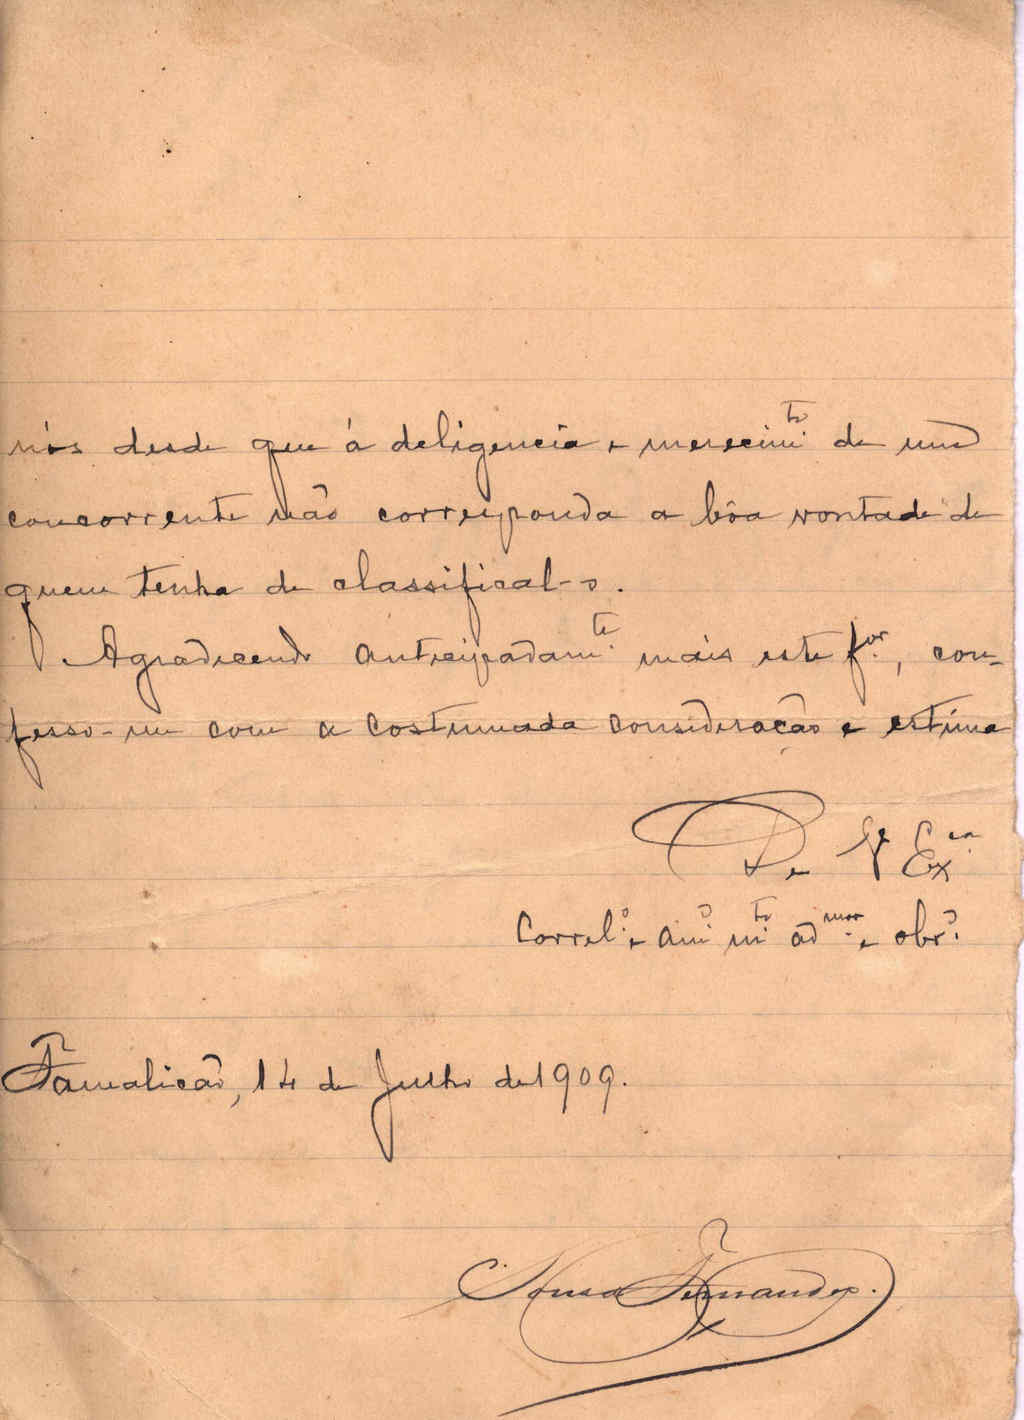 nós desde que á deligencia e merecim.to de um
concorrente não corresponda a bôa vontade de
quem tenha de classifical-o.
Agradecendo anticipadam.te mais este f.or, con-
fesso-me com a costumada consideração e estima
De V Ex.cia
Correl.o e am.o m.to ad.mor e obr.o
Famalicão, 14 de Julho de 1909.
Sousa Fernandes.